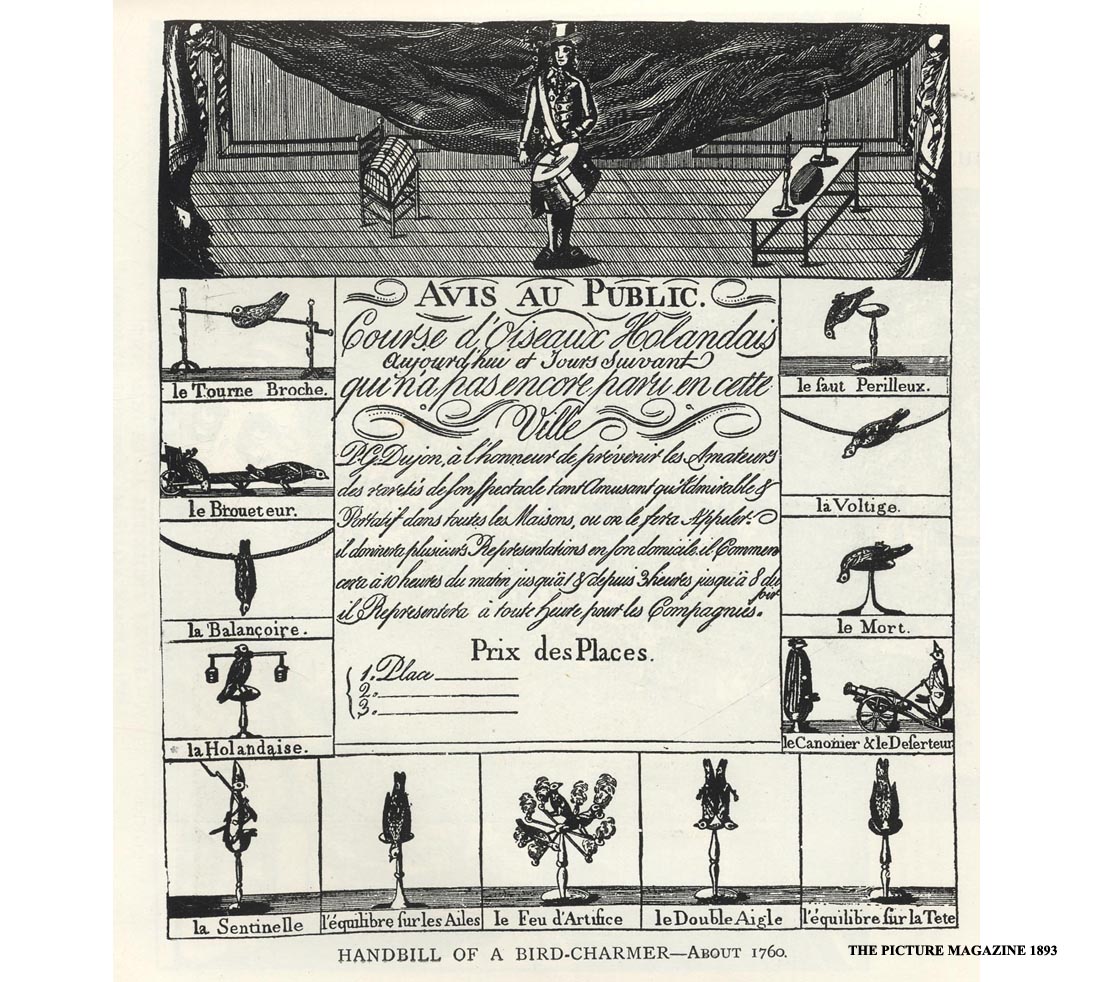 AVIS AU PUBLIC.
Course d'Oiseaux Holandais
Aujourd'hui et Jours Suivant
qui n'a pas encore paru en cette
Ville
P.G. Dujon, à l'honneur de prévenir les Amateurs
des raretés de son Spectacle tant Amusant qu'Admirable &
Portatif dans toutes les Maisons, ou on le fera Appeler.
il donnera plusieurs Représentations en son domicile. il Commen
cera à 10 heures du matin jusqu'à 1 & depuis 3 heures jusqu'à 8 du
soir
il Representera à toute heure pour les Compagnies.
Prix des Places.
1. Place
2.
3.
le Tourne Broche.
le Broueteur.
la Balançoire.
la Holandaise.
le saut Perilleux.
la Voltige.
le Mort.
le Canonier & le Deserteur
la Sentinelle
l'équilibre sur les Ailes
le Feu d'Artifice
le Double Aigle
l'équilibre sur la Tete
HANDBILL OF A BIRD-CHARMER—ABOUT 1760.
THE PICTURE MAGAZINE 1893